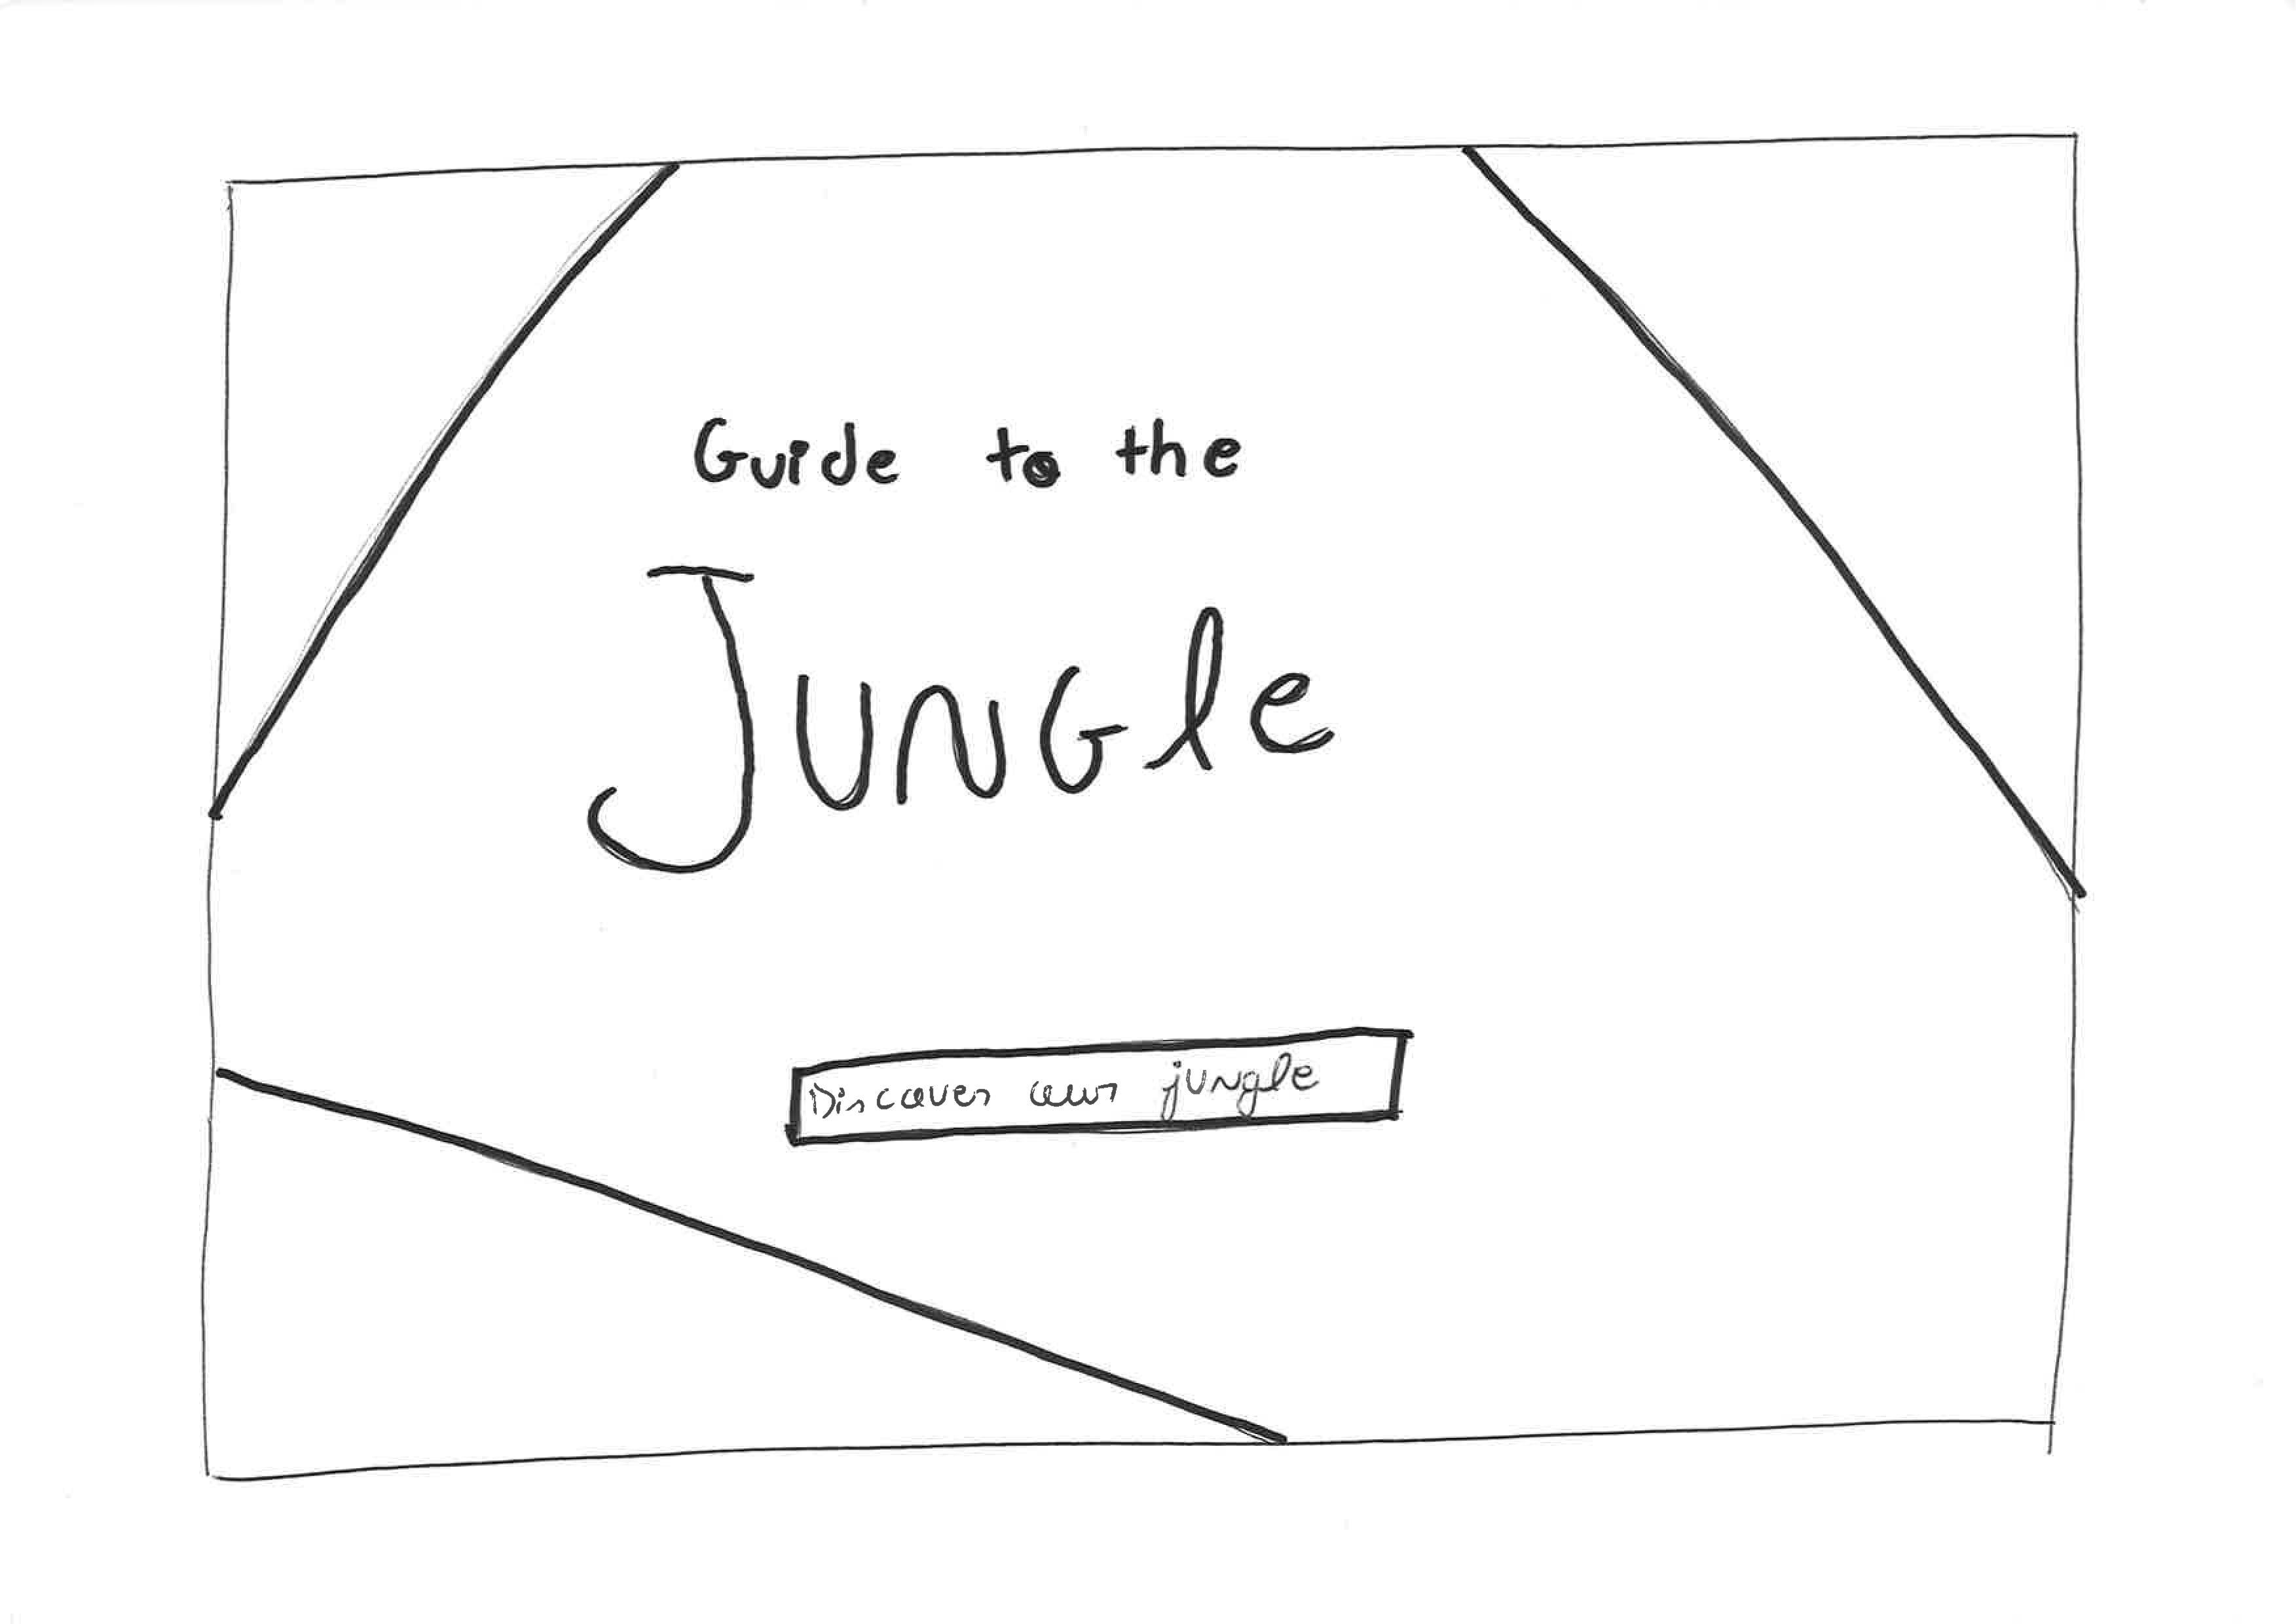 Guide to the
Jungle
Discover our jungle